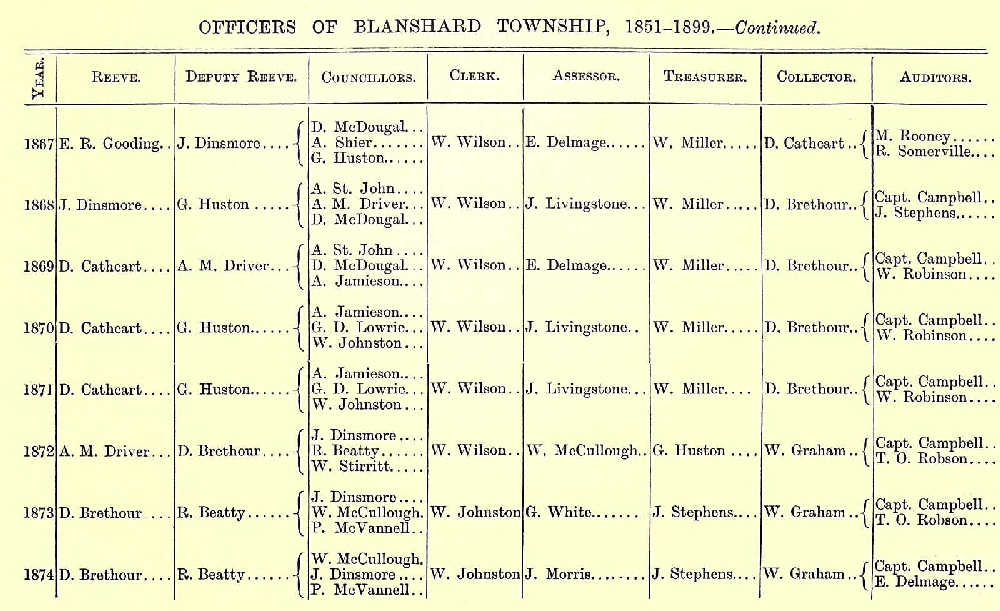 OFFICERS OF BLANSHARD TOWNSHIP, 1851–1899.—Continued.
YEAR. REEVE. DEPUTY REEVE. COUNCILLORS. CLERK. ASSESSOR. TREASURER. COLLECTOR. AUDITORS.
D. McDougal...
M. Rooney......
1867 E. R. Gooding.. J. Dinsmore.... { A. Shier....... W. Wilson.. E. Delmage...... W. Miller..... D. Cathcart .. {
G. Huston......
R. Somerville....
A. St. John....
Capt. Campbell..
1868 J. Dinsmore.... G. Huston ..... { A. M. Driver... W. Wilson.. J. Livingstone... W. Miller..... D. Brethour.. {
D. McDougal...
J. Stephens......
A. St. John ....
Capt. Campbell..
1869 D. Cathcart.... A. M. Driver... { D. McDougal... W. Wilson.. E. Delmage...... W. Miller..... D. Brethour.. {
A. Jamieson....
W. Robinson....
A. Jamieson....
Capt. Campbell..
1870 D. Cathcart.... G. Huston...... { G. D. Lowrie... W. Wilson.. J. Livingstone.. W. Miller..... D. Brethour.. {
W. Johnston...
W. Robinson....
A. Jamieson....
Capt. Campbell..
1871 D. Cathcart.... G. Huston...... { G. D. Lowrie... W. Wilson.. J. Livingstone... W. Miller.... D. Brethour.. {
W. Johnston...
W. Robinson....
J. Dinsmore....
Capt. Campbell..
1872 A. M. Driver... D. Brethour.... { R. Beatty...... W. Wilson.. W. McCullough.. G. Huston .... W. Graham.. {
W. Stirritt.....
T. O. Robson....
J. Dinsmore....
Capt. Campbell..
1873 D. Brethour .... R. Beatty...... { W. McCullough. W. Johnston G. White....... J. Stephens.... W. Graham .. {
P. McVannell..
T. O. Robson....
W. McCullough.
Capt. Campbell..
1874 D. Brethour.... R. Beatty...... { J. Dinsmore .... W. Johnston J. Morris........ J. Stephens.... W. Graham.. {
P. McVannell..
E. Delmage......